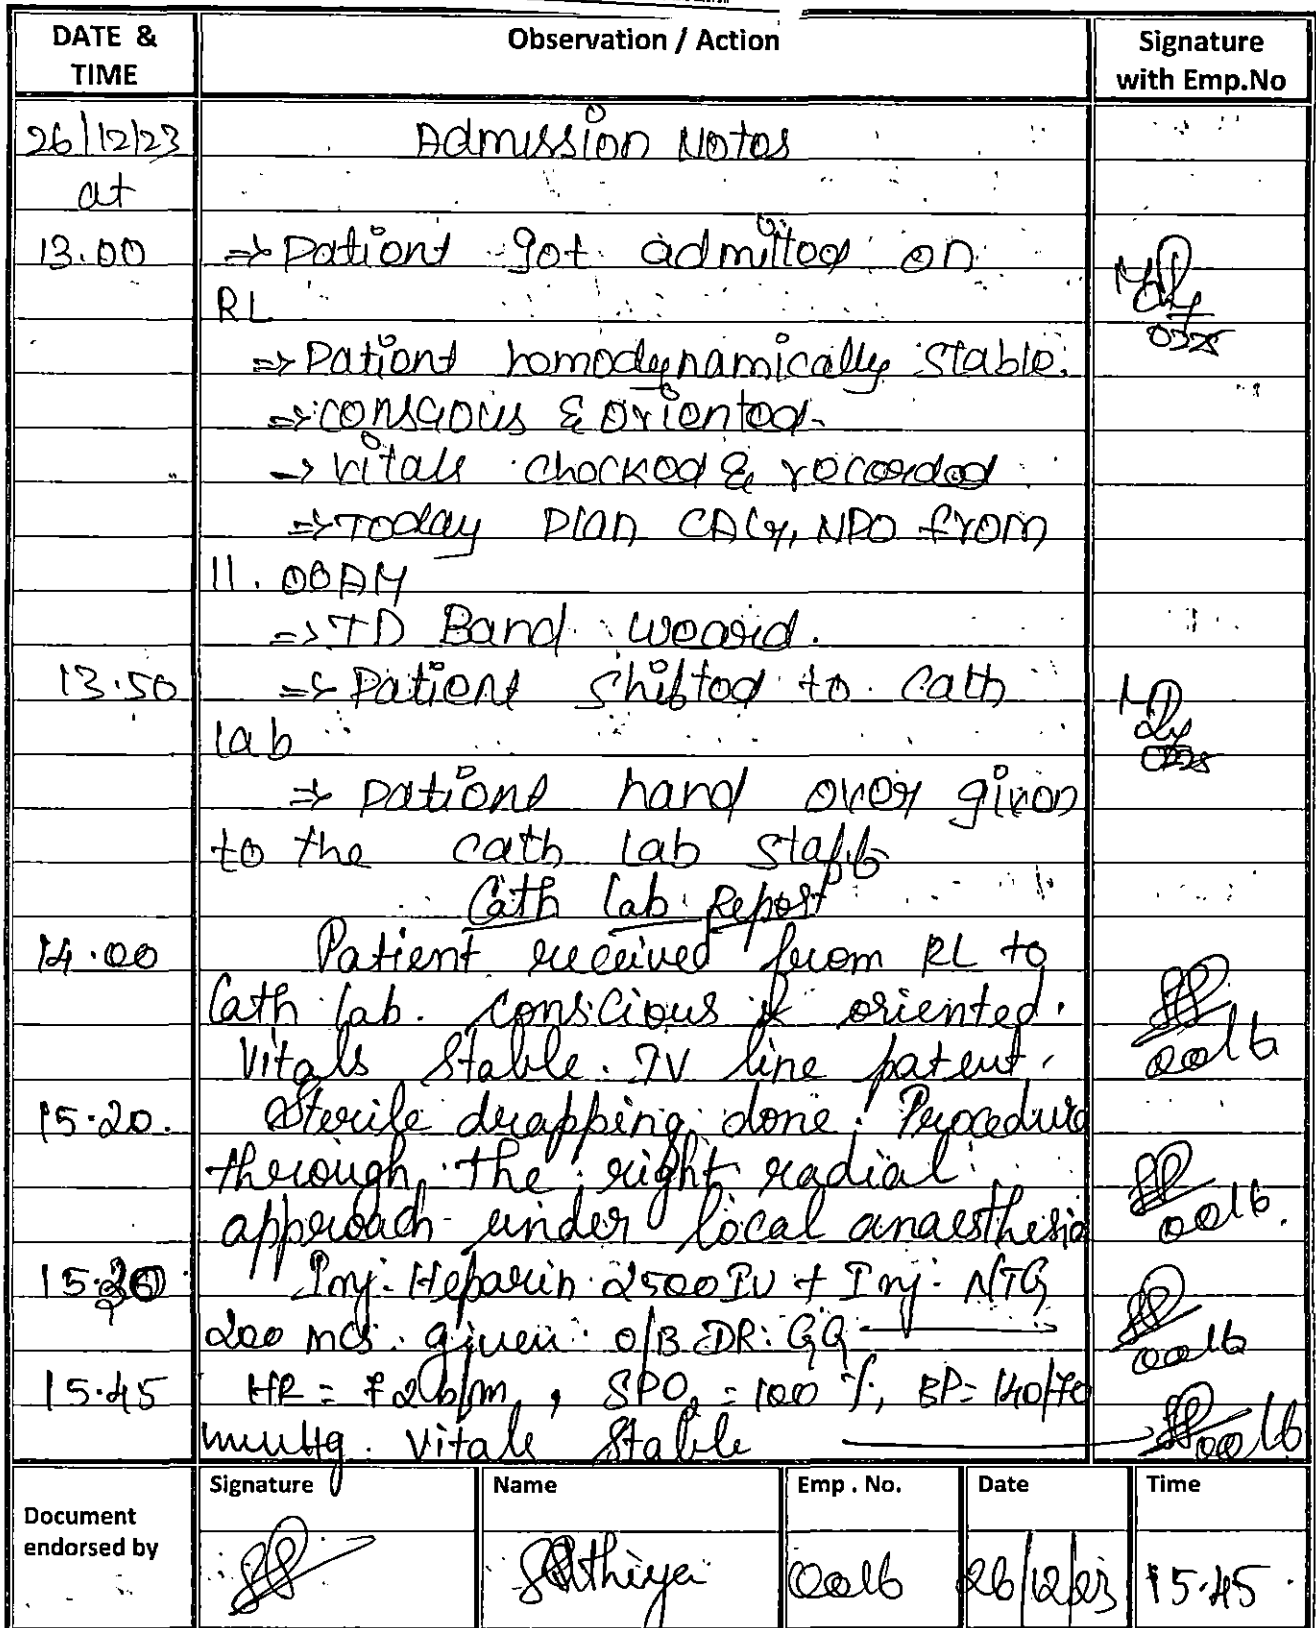 DATE & TIME Observation / Action Signature with Emp.No
26/12/23 Admission Notes
at
13.00 => Patient got admitted on
RL
=> Patient hemodynamically stable.
=> conscious & oriented.
-> vitals checked & recorded
=> Today Plan CAG, NPO from
11.00AM
=> ID Band weard.
13.50 => Patient shifted to cath
lab
=> patient hand over given
to the cath lab staffs
Cath lab Report
14.00 Patient received from RL to
Cath lab. conscious & oriented.
Vitals Stable. IV line patent. 0016
15.20. Sterile drapping done. Procedure
through the right radial
approach under local anaesthesia 0016.
Inj. Heparin 2500 IU + Inj. NTG
200 mcs. given O/B DR. GG 0016
15.45 HR = 72 b/m, SPO2 = 100 %, BP = 140/70
mmHg. Vitals Stable 0016
Document endorsed by Signature Name Emp . No. Date Time
Sathiya 0016 26/12/23 15.45